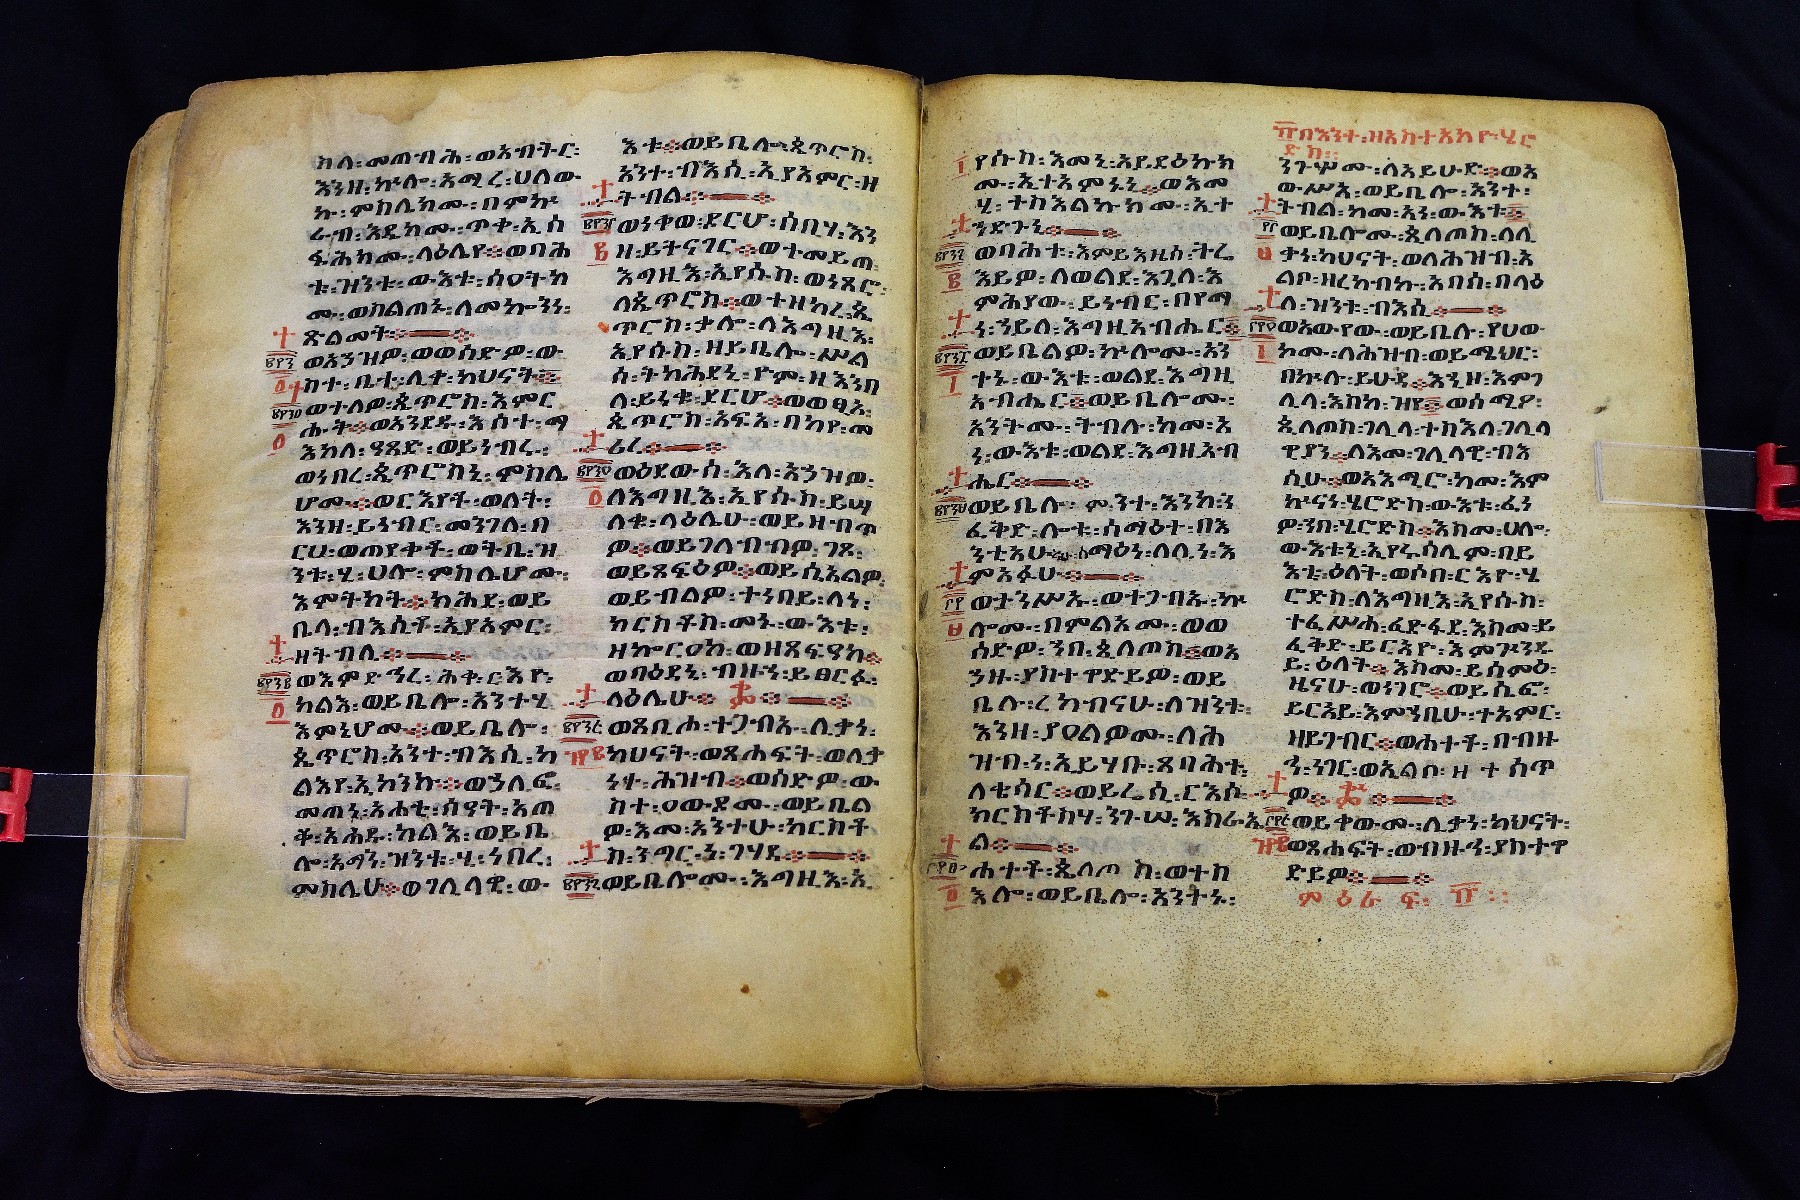 ክለ፡መጠብሕ፡ወአብትር፡
እንዘ፡ኵሎ፡አሚረ፡ሀለው
ኩ፡ምስሌክሙ፡በምኵ
ራብ፡እዴክሙ፡ጥቀ፡ኢሰ
ፋሕክሙ፡ላዕሌየ፡ወባሕ
ቱ፡ዝንቱ፡ውእቱ፡ሰዐትክ
ሙ፡ወስልጠኑ፡ለመኰንነ፡
ጽልመት፡
ወአኀዝዎ፡ወወሰድዎ፡ው
ስተ፡ቤተ፡ሊቀ፡ካህናት፡
ወተለዎ፡ጴጥሮስ፡እምር
ሑት፡ወአንደዱ፡እሰተ፡ማ
እከለ፡ዓጸድ፡ወይነብሩ፡
ወነበረ፡ጴጥሮስኒ፡ምስሌ
ሆሙ፡ወርእየቶ፡ወለት፡
እንዘ፡ይነብር፡መንገለ፡ብ
ርሀ፡ወጠየቀቶ፡ወትቤ፡ዝ
ንቱ፡ሂ፡ሀሎ፡ምስሌሆሙ፡
እምትካት፡ክሕደ፡ወይ
ቤላ፡ብእሲቶ፡ኢያአምር፡
ዘትብሊ፡
ወእምድኅረ፡ሕቀ፡ርእየ፡
ካልእ፡ወይቤሎ፡አንተሂ
እምኔሆሙ፡ወይቤሎ፡
ጴጥሮስ፡አንተ፡ብእሲ፡ኮ
ልእየ፡ኢኮንኩ፡ወኃሊፎ
መጠነ፡አሐቲ፡ሰዓት፡አጠ
ቆ፡አሐዱ፡ካልእ፡ወይቤ
ሎ፡አማን፡ዝንቱ፡ሂ፡ነበረ፡
ምስሌሁ፡ወገሊላዊ፡ው
እቱ፡ወይቤሎ፡ጴጥሮስ፡
አንተ፡ብእሲ፡ኢየአምር፡ዘ
ትብል፡
ወነቀወ፡ደርሆ፡ሰቤሃ፡እን
ዘ፡ይትናገር፡ወተመይጠ
እግዚእ፡ኢየሱስ፡ወነጸሮ፡
ለጴጥሮስ፡ወተዘከረ፡ጴ
ጥሮስ፡ቃሎ፡ለእግዚእ፡
ኢየሱስ፡ዘይቤሎ፡ሥል
ሰ፡ትክሕደኒ፡ዮም፡ዘእንበ
ለ፡ይነቁ፡ደርሆ፡ወወፂአ፡
ጴጥሮስ፡አፍአ፡በከየ፡መ
ሪረ፡
ወዕደውሰ፡እለ፡አኀዝዎ፡
ለእግዚእ፡ኢየሱስ፡ይሣ
ለቁ፡ላዕሌሁ፡ወይዘብጥ
ዎ፡ወይገለብብዎ፡ገጾ፡
ወይጸፍዕዎ፡ወይሴአልዎ፡
ወይብልዎ፡ተነበይ፡ለነ፡
ክርስቶስ፡መኑ፡ውእቱ፡
ዘኰርዐከ፡ወዘጸፍዓከ፡
ወባዕደኒ፡ብዙኀ፡ይፀርፉ፡
ላዕሌሁ፡
ወጸቢሖ፡ተጋብኡ፡ሊቃነ፡
ካህናት፡ወጸሐፍት፡ወሊቃ
ነሃ፡ሕዝብ፡ወሰድዎ፡ው
ስተ፡ዐውደሙ፡ወይቤል
ዎ፡እመ፡አንተሁ፡ክርስቶ
ስ፡ንግር፡ነ፡ገሃደ፡
ወይቤሎሙ፡እግዚእ፡ኢ
የሱስ፡እመኒ፡አይዳዕኩክ
ሙ፡ኢተአምኑኒ፡ወእመ
ሂ፡ተስእልኩክሙ፡ኢተ
ንድጉኒ፡
ወባሕቱ፡እምይእዚሰ፡ትሬ
እይዎ፡ለወልደ፡እጓለ፡እ
ምሕያው፡ይነብር፡በየማ
ነ፡ኀይለ፡እግዚአብሔር፡
ወይቤልዎ፡ኵሎሙ፡አን
ተኑ፡ውእቱ፡ወልደ፡እግዚ
አብሔር፡ወይቤሎሙ፡
አንትሙ፡ትብሉ፡ከመ፡አ
ነ፡ውእቱ፡ወልደ፡እግዚአብ
ሔር፡
ወይቤሉ፡ምንተ፡እንከ፡ን
ፈቅድ፡ሎቱ፡ሰማዕተ፡በእ
ንቲአሁ፡ሰማዕነ፡ለሊነ፡እ
ምአፉሁ፡
ወተንሥኡ፡ወተጋብኡ፡ኵ
ሎሙ፡በምልኦሙ፡ወወ
ሰድዎ፡ኀበ፡ጲላጦስ፡ወአ
ኀዙ፡ያስተዋድይዎ፡ወይ
ቤሉ፡ረከብናሁ፡ለዝንቱ፡
እንዘ፡ያዐልዎሙ፡ለሕ
ዝብነ፡ኢይሃቡ፡ጸባሕተ፡
ለቄሳር፡ወይሬሲ፡ርእሶ፡
ክርስቶስሃ፡ንጉሠ፡እስራኤ
ል፡
ሐተቶ፡ጲላጦስ፡ወተስ
እሎ፡ወይቤሎ፡አንትኑ፡
፹በእንተ፡ዘአስተአከዮ፡ሄሮ
ድስ፡
ንጉሦሙ፡ለአይሁድ፡ወአ
ውሥአ፡ወይቤሎ፡አንተ፡
ትብል፡ከመ፡አነ፡ውእቱ፡
ወይቤሎሙ፡ጲላጦስ፡ለሊ
ቃነ፡ካህናት፡ወለሕዝብ፡አ
ልቦ፡ዘረከብኩ፡አበሰ፡በላዕ
ለ፡ዝንቱ፡ብእሲ፡
ወአውየው፡ወይቤሉ፡የሀው
ኮሙ፡ለሕዝብ፡ወይሜህር፡
በኵሉ፡ይሁዳ፡እኂዞ፡እምገ
ሊላ፡እስከ፡ዝየ፡ወሰሚዖ፡
ጲላጦስ፡ገሊላ፡ተስእለ፡ገሊላ
ዊያን፡ለእመ፡ገሊላዊ፡ብእ
ሲሁ፡ወአእሚሮ፡ከመ፡እም
ኵናነ፡ሄሮድስ፡ውእቱ፡ፈነ
ዎ፡ኀበ፡ሄሮድስ፡እስመ፡ሀሎ፡
ውእቱኒ፡ኢየሩሳሌም፡በይ
እቲ፡ዕለት፡ወሶበ፡ርእየ፡ሄ
ሮድስ፡ለእግዚእ፡ኢየሱስ፡
ተፈሥሐ፡ፈድፋደ፡እስመ፡ይ
ፈቅድ፡ይርአዮ፡እምጕንዱ
ይ፡ዕለት፡እስመ፡ይሰምዕ፡
ዜናሁ፡ወነገሮ፡ወይሴፎ፡
ይርአይ፡እምኀቤሁ፡ተአምር፡
ዘይገብር፡ወሐተቶ፡በብዙ
ኅ፡ነገር፡ወኢልቦ፡ዘተሰጥ
ዎ፡
ወይቀውሙ፡ሊቃነ፡ካህናት፡
ወጸሐፍት፡ወብዙኀ፡ያስተዋ
ድይዎ፡
ምዕራፍ፡፹፡